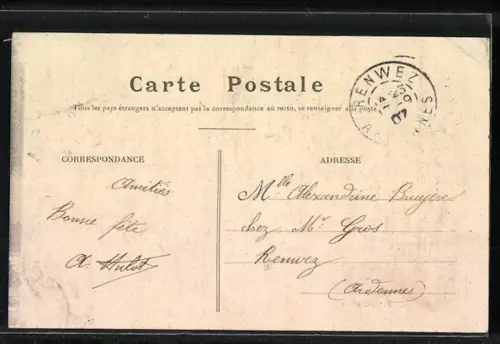 Carte Postale
Tous les pays étrangers n'acceptent pas la correspondance au recto, se renseigner à la poste
RENWEZ
CORRESPONDANCE
ADRESSE
Amitiés
Bonne fête
A. Hulot
Mlle Alexandrine Bruyère
chez Mr Gros
Renwez
(Ardennes)